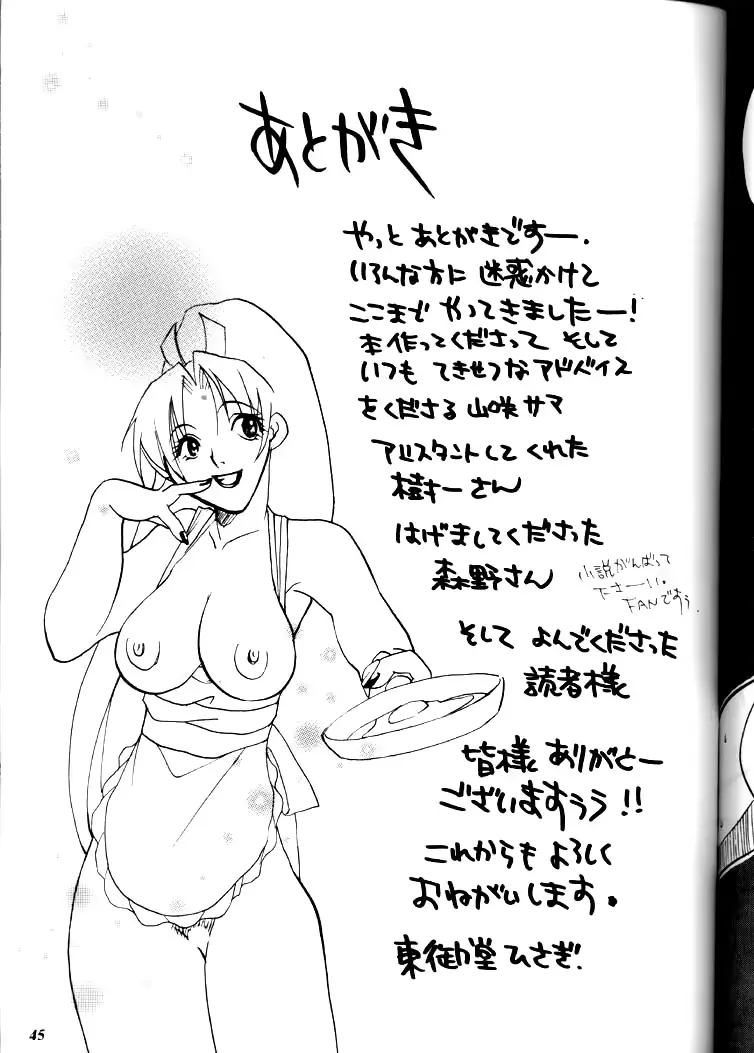 あとがき
やっと あとがきですー.
いろんな方に 迷惑かけて
ここまで やってきましたー!
本作ってくださって そして
いつも てきせつな アドバイス
をくださる 山咲サマ
アシスタントして くれた
樹さん
はげましてくださった
森野さん
小説がんばって
ださーい。
FANですぅ.
そして よんでくださった
読者様
皆様 ありがとー
ございますぅぅ!!
これからも よろしく
おねがいします。
東御堂ひさぎ.
45